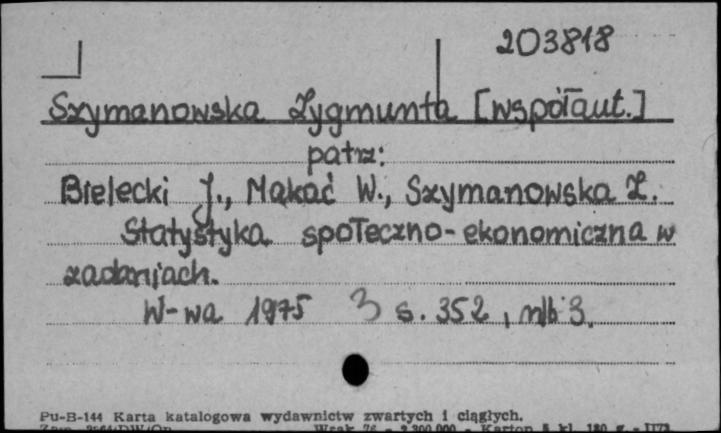 203818
Szymanowska Zygmunta [współaut.]
patrz:
Bielecki J., Makać W., Szymanowska Z.
Statystyka społeczno-ekonomiczna w
zadaniach.
W-wa 1975 3 s. 352, nlb 3.
Pu-B-144 Karta katalogowa wydawnictw zwartych i ciągłych.